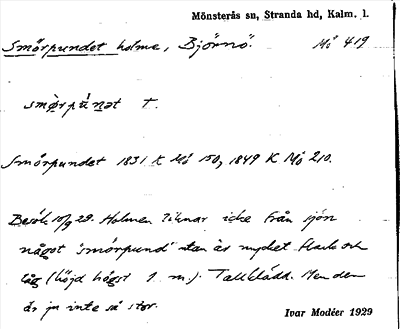 Mönsterås sn, Stranda hd, Kalm. l.
Smörpundet holme, Björnö. Mö 419
smö̀rpún̠ət T.
Smörpundet 1831 K Mö 150, 1849 K Mö 210.
Besök 10/9 29. Holmen liknar icke från sjön
något 'smörpund' utan är mycket flack och
låg (höjd högst 1 m.). Tallklädd. Men den
är ju inte så stor.
Ivar Modéer 1929